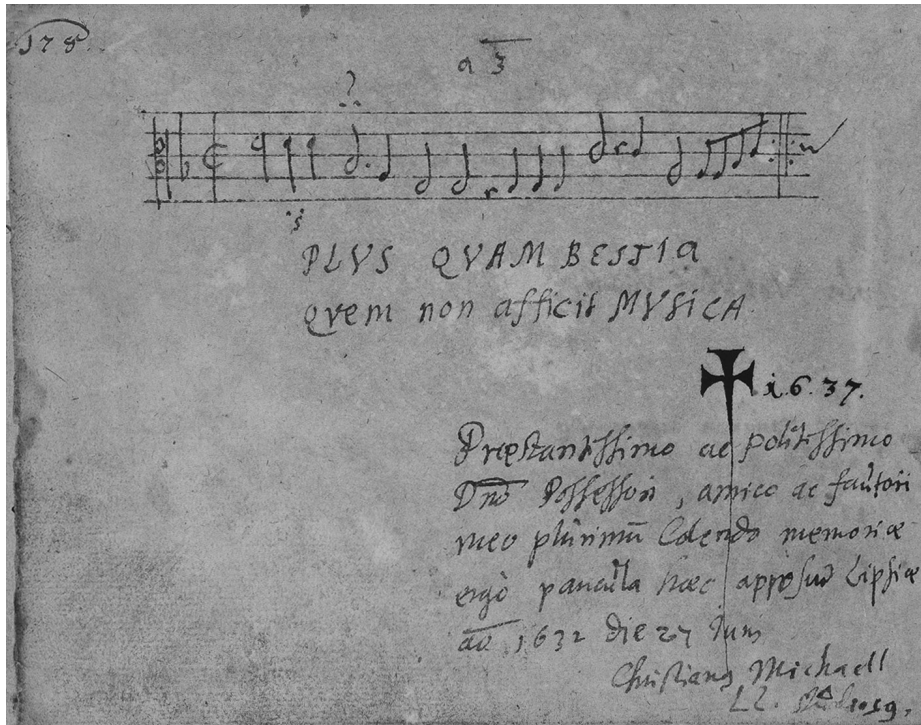 178
a 3
PLVS QVAM BESTIA
Qvem non afficit MVSICA
1.6.37.
Præstantissimo ac politissimo
Dno Possessori, amico ac fautori
meo plurimū Colendo memoriæ
ergò paucula hæc apposui Lipsiæ
ao 1632 die 27 Juny
Christiang Michaell
LL.